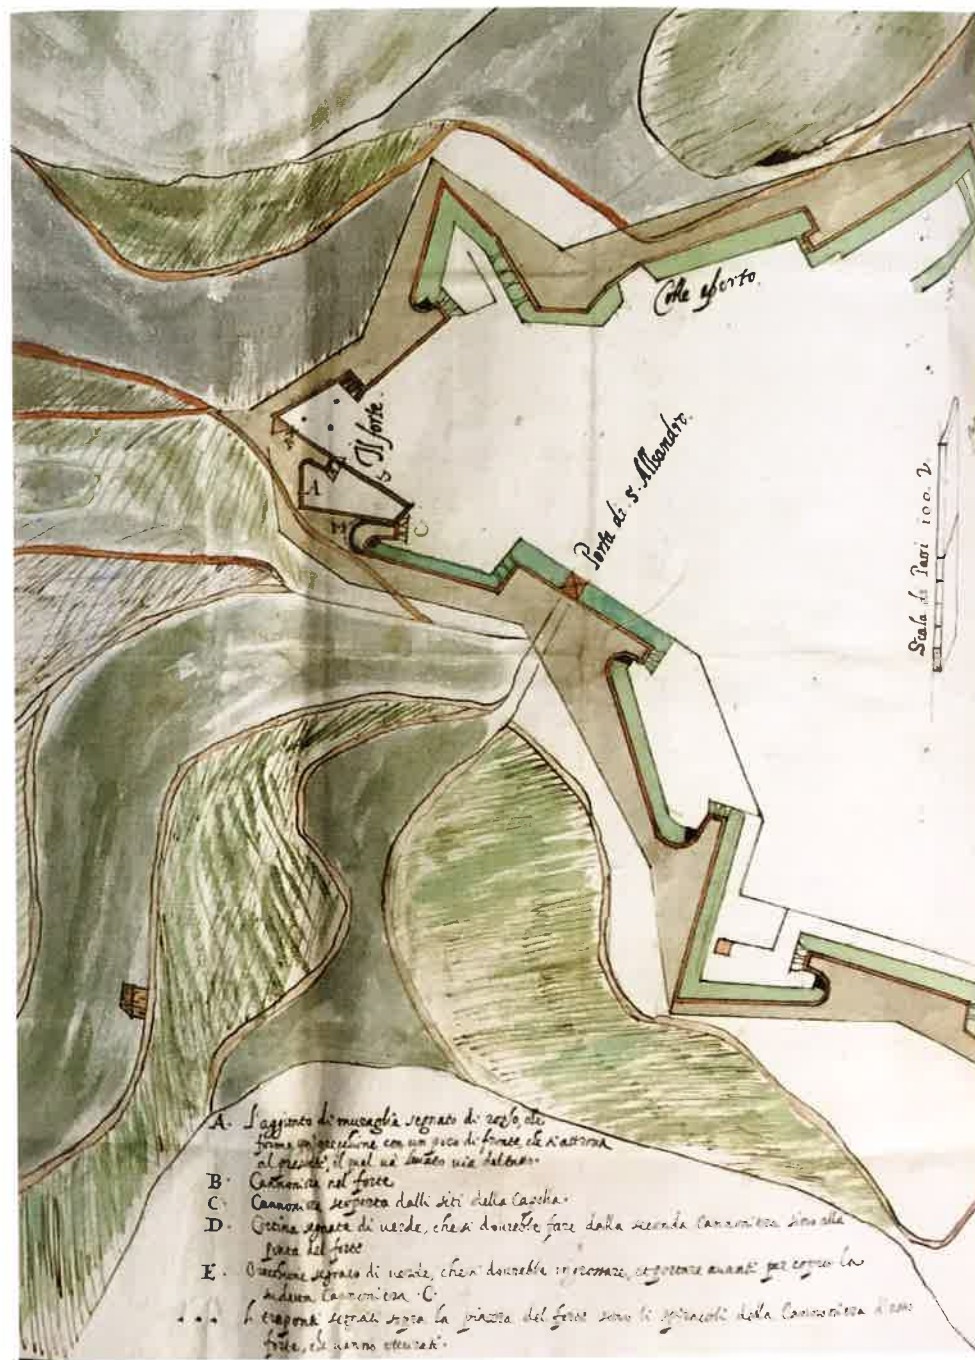 Colle aperto.
Il forte.
A
C
Porta di S. Alisandro.
Scala di Passi 100. 2
A. L'aggionto di muraglia segnato di rosso, che
forma un'orecchione con un poco di fronte, che si attrova
al presente, il qual và levato via del tutto.
B. Cannoniera nel forte
C. Cannoniera scoperta dalli siti della
D. Cortina segnata di verde, che si dovrebbe fare dalla seconda Cannoniera sino alla
punta del forte
E. Orecchione segnato di verde, che si dovrebbe ingrossare, et portare avanti per coprir la
Cannoniera .C.
. . . Li tre ponti segnati sopra la piazza del forte sono li spiracoli della Cannoniera d'esso
forte, che vanno otturati.